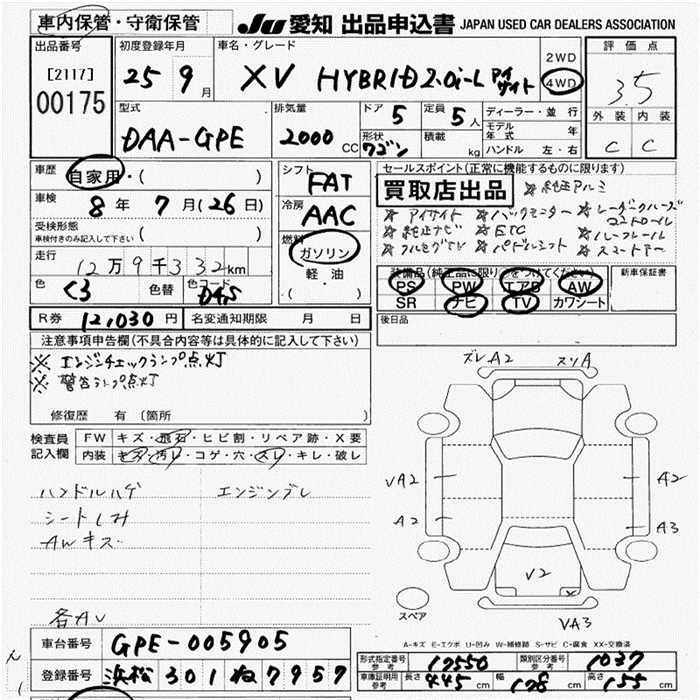 車内保管・守衛保管
JU 愛知 出品申込書 JAPAN USED CAR DEALERS ASSOCIATION
出品番号
[2117]
00175
初度登録年月
25 9月
車名・グレード
XV HYBRID 2.0i-L アイサイト
2WD
4WD
評価点
3.5
外装 内装
C C
型式
DAA-GPE
排気量
2000 CC
ドア 5
定員 5人
形状 ワゴン
積載 kg
ディーラー・並行
モデル年式 年
ハンドル 左・右
車歴
自家用・( )
車検
8年 7月(26日)
受検形態
車検付きのみ記入して下さい ( )
走行
12万9千332km
色
色替
色コード
シフト
FAT
冷房
AAC
燃料
ガソリン
軽油
・( )
セールスポイント(正常に機能するものに限ります)
買取店出品
※純正アルミ
※アイサイト ※バックモニター ※レーダークルーズコントロール
※純正ナビ ※ETC ※ルーフレール
※フルセグTV ※パドルシフト ※スマートキー
装備品(純正品に限り○をつけてください)
PS PW エアB AW
SR ナビ TV カワシート
新車保証書
後日品
R券 12,030円
名変通知期限 月 日
注意事項申告欄(不具合内容等は具体的に記入して下さい)
※ エンジンチェックランプ点灯
※ 警告ランプ点灯
修復歴 有 (箇所 )
検査員記入欄
FW キズ・飛石・ヒビ割・リペア跡・X要
内装 キズ・汚レ・コゲ・穴・スレ・キレ・破レ
ハンドルハゲ エンジンブレ
シートしみ
AWキズ
各AU
ズレA2 スリA
VA2 A2
A2 A3
V2
X
VA3
スペア
A-キズ E-エクボ U-凹み W-補修跡 S-サビ C-腐食 XX-交換済
車台番号 GPE-005905
登録番号 浜松 301 ね 7957
形式指定番号 参考 17550
類別区分番号 参考 1037
車庫証明用 参考 長さ 445cm 幅 178cm 高さ 155cm